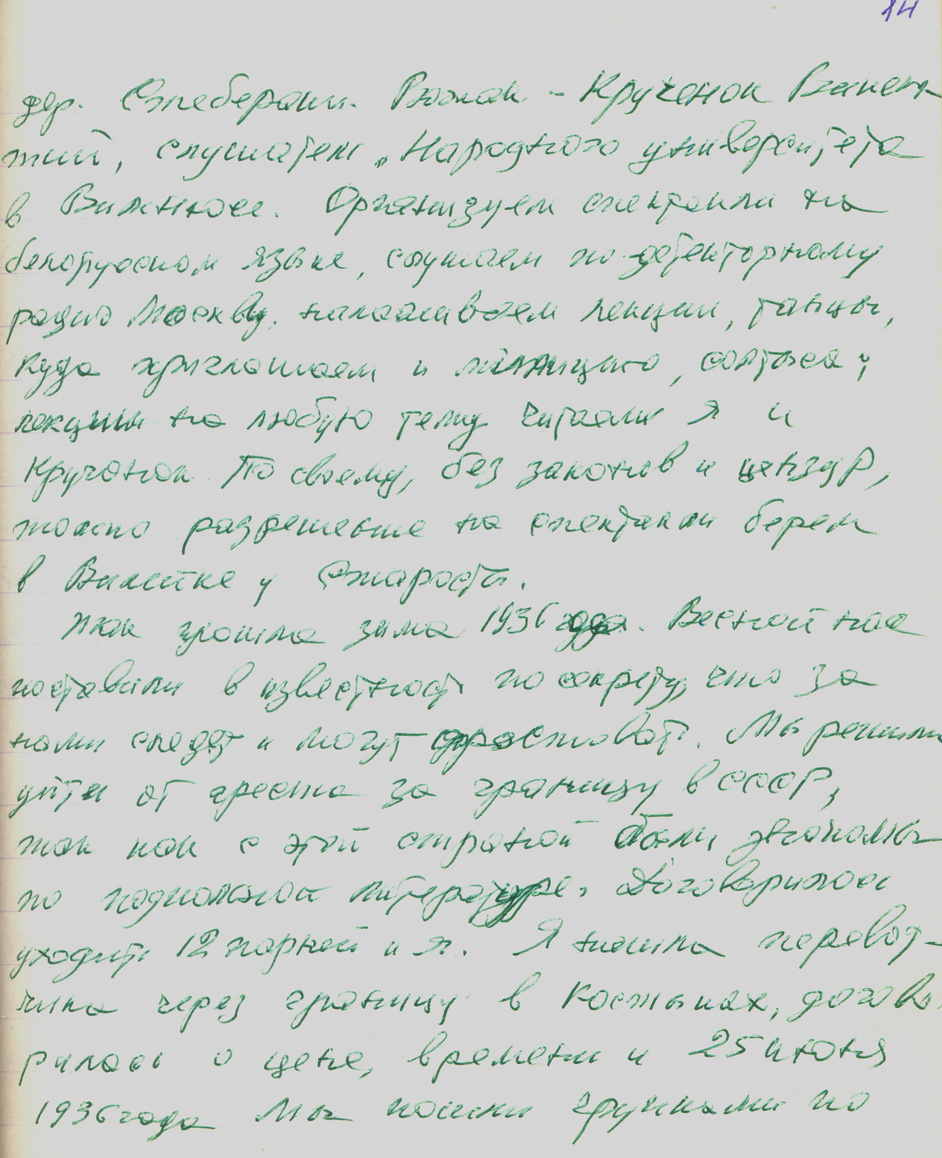 14
дер. Стеберами. Вожак - Кручонок Викен-
тий, слушатель „Народного университета
в Вильнюсе. Организуем спектакли на
белорусском языке, слушаем по детекторному
радио Москву, налаживаем лекции, танцы,
куда приглашаем и милицию, солтыса;
лекции на любую тему читали я и
Кручонок по своему, без законов и цензур,
только разрешение на спектакли берем
в Вилейке у Старосты.
Так прошла зима 1936 года. Весной нас
поставили в известность по секрету, что за
нами следят и могут арестовать. Мы решили
уйти от ареста за границу в СССР,
так как с этой страной были знакомы
по подпольной литературе. Договорилось
уходить 12 парней и я. Я нашла перевод-
чика через границу в Костынах, догово
рилась о цене, времени и 25 июня
1936 года мы пошли группами по